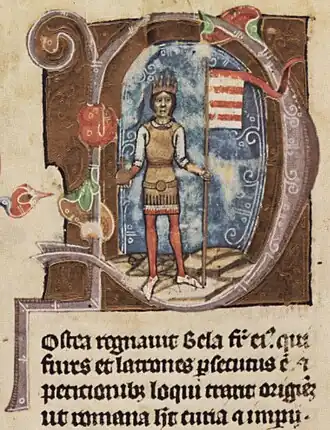 Postea regnauit Bela fr̄ eiꝰ qui
fures et latrones ꝑsecutus ē ⁊ a
peticionibꝫ loqui traxit origiēꝫ
ut romana hꝫ curia ⁊ impij.